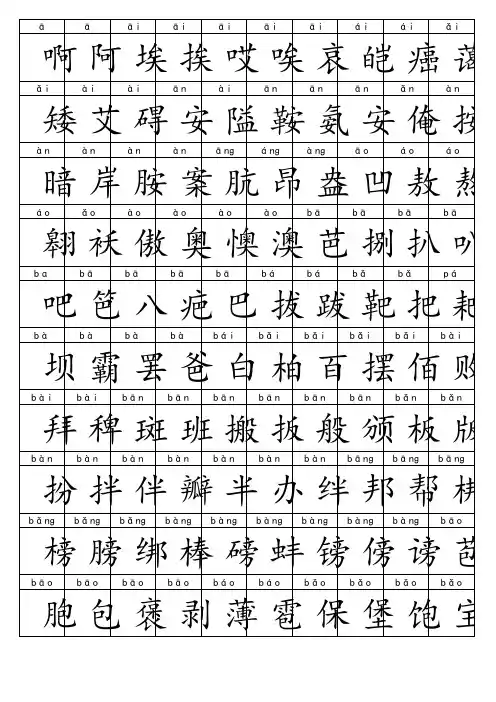 ā ā āi āi āi āi āi ái ái ǎi
啊 阿 埃 挨 哎 唉 哀 皑 癌 蔼
ǎi ài ài ān ài ān ān ān ǎn àn
矮 艾 碍 安 隘 鞍 氨 安 俺 按
àn àn àn àn āng áng àng āo áo áo
暗 岸 胺 案 肮 昂 盎 凹 敖 熬
áo ǎo ào ào ào ào bā bā bā bā
翱 袄 傲 奥 懊 澳 芭 捌 扒 叭
ba bā bā bā bā bá bá bǎ bǎ pá
吧 笆 八 疤 巴 拔 跋 靶 把 耙
bà bà bà bà bái bǎi bǎi bǎi bǎi bài
坝 霸 罢 爸 白 柏 百 摆 佰 败
bài bài bān bān bān bān bān bān bǎn bǎn
拜 稗 斑 班 搬 扳 般 颁 板 版
bàn bàn bàn bàn bàn bàn bàn bāng bāng bǎng
扮 拌 伴 瓣 半 办 绊 邦 帮 梆
bǎng bǎng bǎng bàng bàng bàng bàng bàng bàng bāo
榜 膀 绑 棒 磅 蚌 镑 傍 谤 苞
bāo bāo bāo bāo báo báo bǎo bǎo bǎo bǎo
胞 包 褒 剥 薄 雹 保 堡 饱 宝